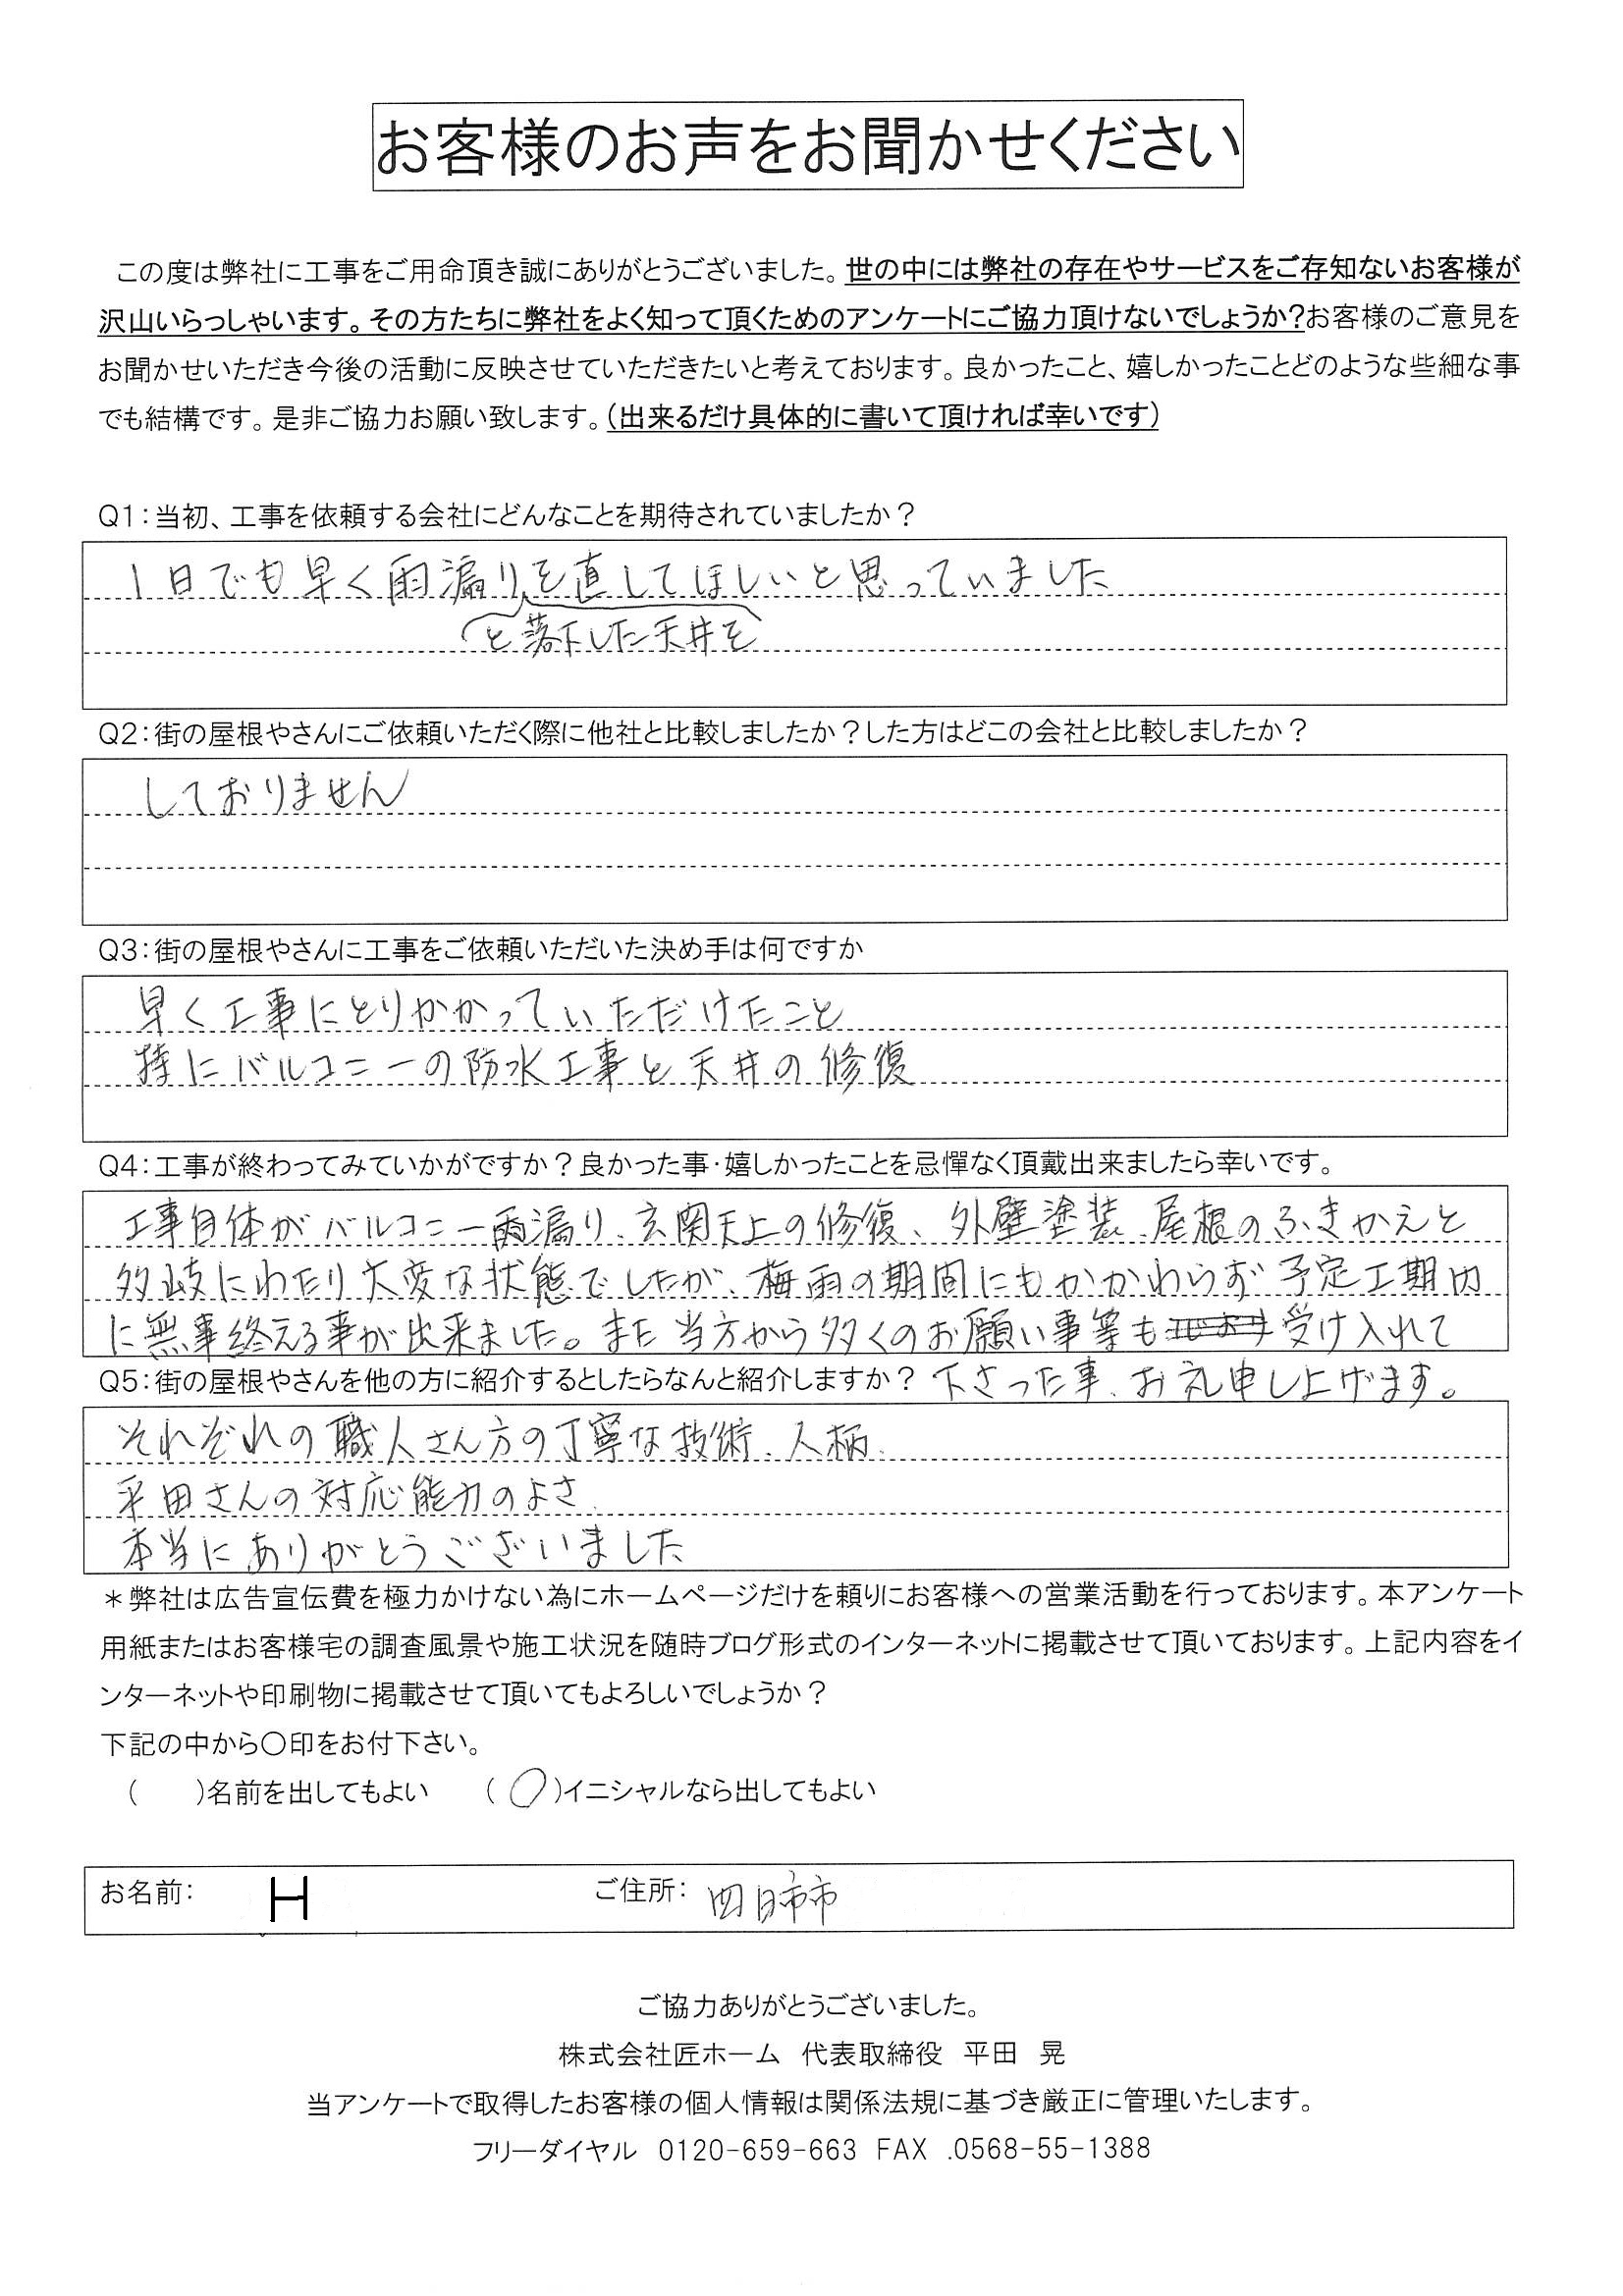 お客様のお声をお聞かせください
この度は弊社に工事をご用命頂き誠にありがとうございました。世の中には弊社の存在やサービスをご存知ないお客様が
沢山いらっしゃいます。その方たちに弊社をよく知って頂くためのアンケートにご協力頂けないでしょうか?お客様のご意見を
お聞かせいただき今後の活動に反映させていただきたいと考えております。良かったこと、嬉しかったことどのような些細な事
でも結構です。是非ご協力お願い致します。(出来るだけ具体的に書いて頂ければ幸いです)
Q1:当初、工事を依頼する会社にどんなことを期待されていましたか?
1日でも早く雨漏りを直してほしいと思っていました
と落下した天井を
Q2:街の屋根やさんにご依頼いただく際に他社と比較しましたか?した方はどこの会社と比較しましたか?
しておりません
Q3:街の屋根やさんに工事をご依頼いただいた決め手は何ですか
早く工事にとりかかっていただけたこと
特にバルコニーの防水工事と天井の修復
Q4:工事が終わってみていかがですか?良かった事・嬉しかったことを忌憚なく頂戴出来ましたら幸いです。
工事自体がバルコニー雨漏り、玄関天上の修復、外壁塗装、屋根のふきかえと
多岐にわたり大変な状態でしたが、梅雨の期間にもかかわらず予定工期内
に無事終える事が出来ました。また当方から多くのお願い事等も受け入れて
下さった事、お礼申し上げます。
Q5:街の屋根やさんを他の方に紹介するとしたらなんと紹介しますか?
それぞれの職人さん方の丁寧な技術、人柄、
田さんの対応能力のよさ、
本当にありがとうございました
*弊社は広告宣伝費を極力かけない為にホームページだけを頼りにお客様への営業活動を行っております。本アンケート
用紙またはお客様宅の調査風景や施工状況を随時ブログ形式のインターネットに掲載させて頂いております。上記内容をイ
ンターネットや印刷物に掲載させて頂いてもよろしいでしょうか?
下記の中から〇印をお付下さい。
( )名前を出してもよい (〇)イニシャルなら出してもよい
お名前: H ご住所: 四日市市
ご協力ありがとうございました。
株式会社匠ホーム 代表取締役 平田 晃
当アンケートで取得したお客様の個人情報は関係法規に基づき厳正に管理いたします。
フリーダイヤル 0120-659-663 FAX .0568-55-1388